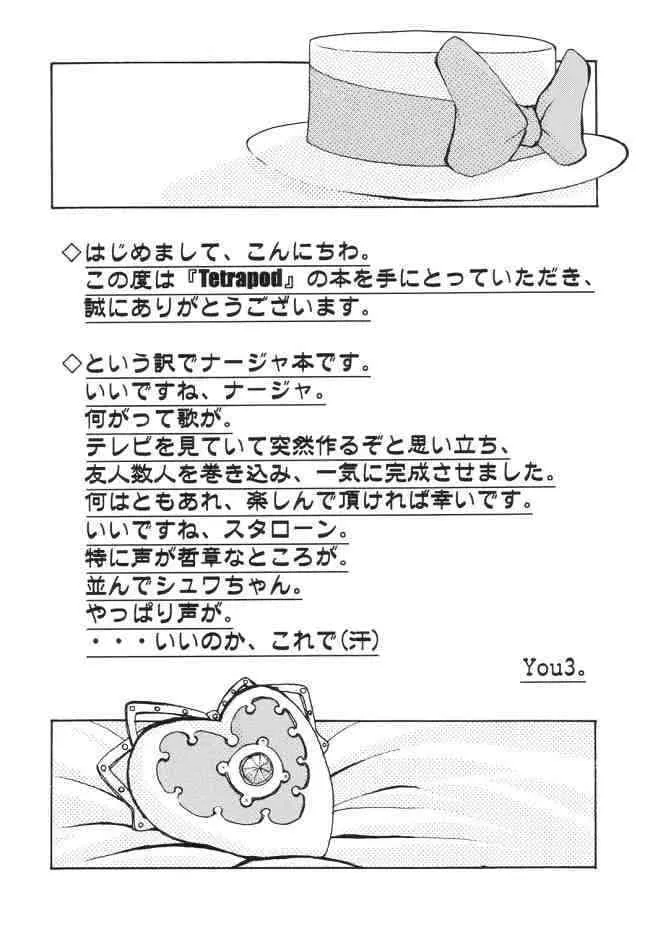 ◇はじめまして、こんにちわ。
この度は『Tetrapod』の本を手にとっていただき、
誠にありがとうございます。
◇という訳でナージャ本です。
いいですね、ナージャ。
何がって歌が。
テレビを見ていて突然作るぞと思い立ち、
友人数人を巻き込み、一気に完成させました。
何はともあれ、楽しんで頂ければ幸いです。
いいですね、スタローン。
特に声が哲章なところが。
並んでシュワちゃん。
やっぱり声が。
・・・いいのか、これで(汗)
You3。